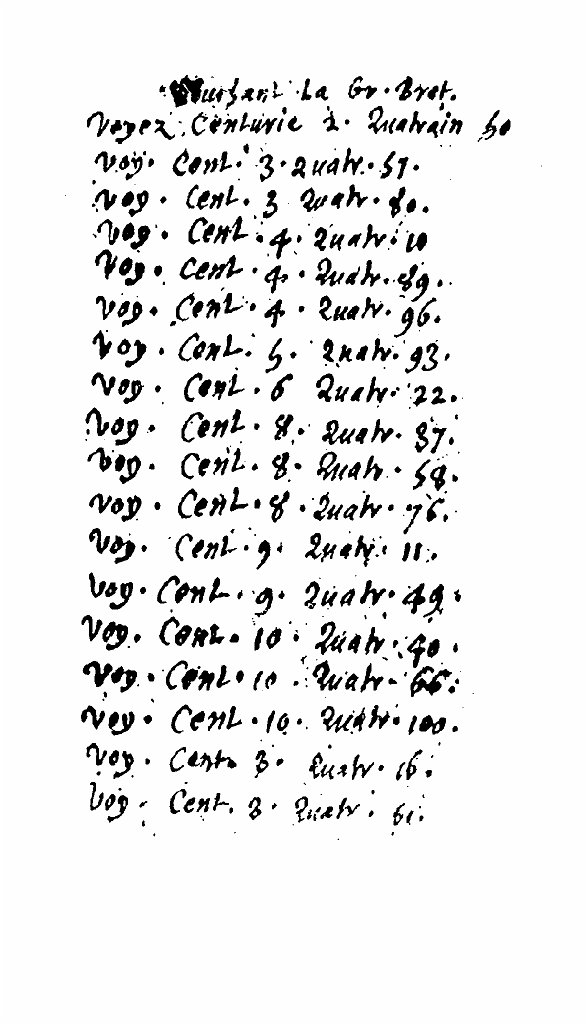 Touchant La Gr. Bret.
Voyez Centurie 2. Quatrain 50
Voy. Cent. 3. Quatr. 57.
Voy. Cent. 3 Quatr. 80.
Voy. Cent. 4. Quatr. 10
Voy. Cent. 4. Quatr. 89.
Voy. Cent. 4. Quatr. 96.
Voy. Cent. 5. Quatr. 93.
Voy. Cent. 6 Quatr. 22.
Voy. Cent. 8. Quatr. 37.
Voy. Cent. 8. Quatr. 58.
Voy. Cent. 8. Quatr. 76.
Voy. Cent. 9. Quatr. 11.
Voy. Cent. 9. Quatr. 49.
Voy. Cent. 10. Quatr. 40.
Voy. Cent. 10. Quatr. 66.
Voy. Cent. 10. Quatr. 100.
Voy. Cent. 3. Quatr. 16.
Voy. Cent. 8. Quatr. 61.